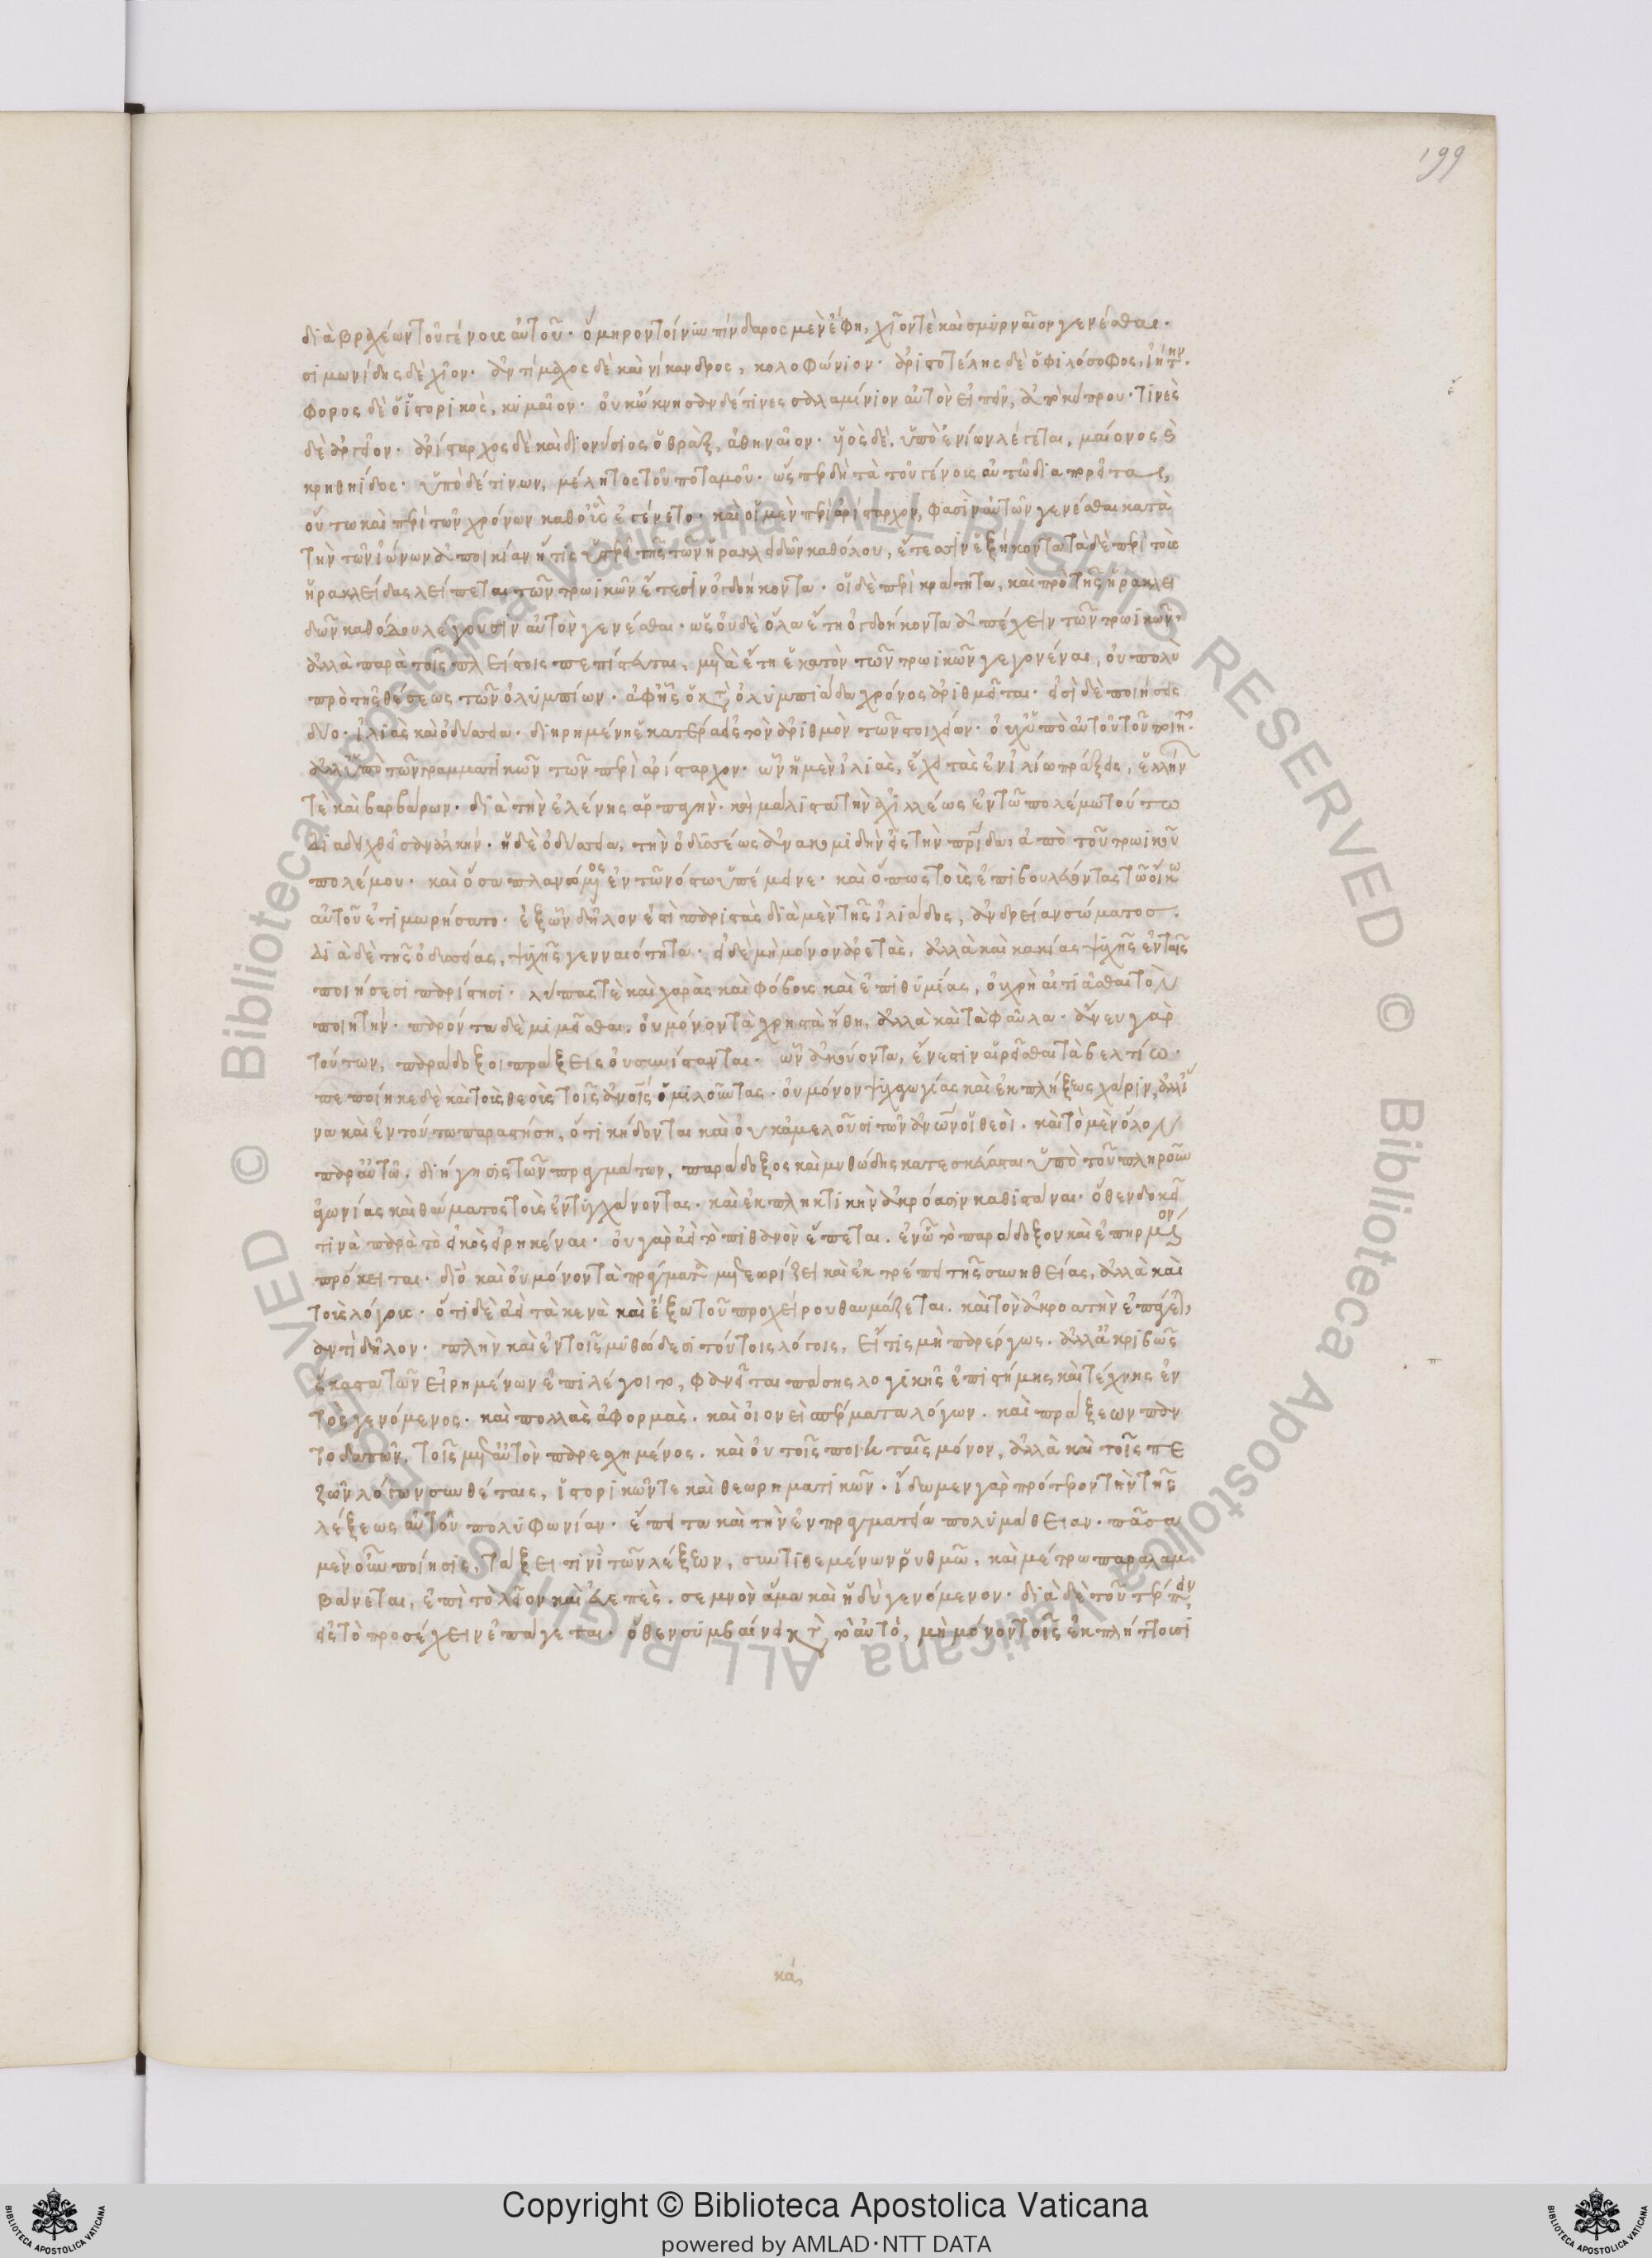 199
διὰ βραχέων τοῦ γένους αὐτοῦ· ὅμηρον τοίνυν πίνδαρος μὲν ἔφη, χῖον τὲ καὶ σμυρναῖον γενέσθαι·
σιμωνίδης δὲ χῖον· ἀντίμαχος δὲ καὶ νίκανδρος, κολοφώνιον· ἀριστοτέλης δὲ ὁ φιλόσοφος, ἰήτην·
φορος δὲ ὁ ἱστορικὸς, κυμαῖον· οὐκ ὤκνησαν δέ τινες σαλαμίνιον αὐτὸν εἰπεῖν, ἀπὸ κύπρου· τινὲς
δὲ ἀργεῖον· ἀρίσταρχος δὲ καὶ διονύσιος ὁ θρὰξ, ἀθηναῖον· υἱὸς δὲ, ὑπὸ ἐνίων λέγεται, μαίονος καὶ
κρηθηίδος· ὑπὸ δέ τινων, μέλητος τοῦ ποταμοῦ· ὥσπερ δὴ τὰ τοῦ γένους αὐτῶ διαπορεῖται,
οὕτω καὶ περὶ τῶν χρόνων καθ' οὓς ἐγένετο· καὶ οἱ μὲν περὶ ἀρίσταρχον, φασὶν αὐτὸν γενέσθαι κατὰ
τὴν τῶν ἰώνων ἀποικίαν ἥτις ὑστερεῖ τῆς τῶν ἡρακλειδῶν καθόδου, ἔτεσιν ἑξήκοντα τὰ δὲ περὶ τοὺς
ἡρακλείδας λείπεται τῶν τρωικῶν ἔτεσιν ὀγδοήκοντα· οἱ δὲ περὶ κράτητα, καὶ πρὸ τῆς ἡρακλει
δῶν καθόδου λέγουσιν αὐτὸν γενέσθαι· ὡς οὐδὲ ὅλα ἔτη ὀγδοήκοντα ἀπέχειν τῶν τρωικῶν·
ἀλλὰ παρὰ τοῖς πλείστοις πεπίστευται, μετὰ ἔτη ἑκατὸν τῶν τρωικῶν γεγονέναι, οὐ πολὺ
πρὸ τῆς θέσεως τῶν ὀλυμπίων· ἀφ' ἧς ὁ κατὰ ὀλυμπιάδα χρόνος ἀριθμεῖται· εἰσὶ δὲ ποιήσεις
δύο· ἰλιὰς καὶ ὀδύσσεια· διηρημένη ἑκατέρα εἰς τὸν ἀριθμὸν τῶν στοιχείων· οὐχ ὑπὸ αὐτοῦ τοῦ ποιητοῦ·
ἀλλ' ὑπὸ τῶν γραμματικῶν τῶν περὶ ἀρίσταρχον· ὧν ἡ μὲν ἰλιὰς, ἔχει τὰς ἐν ἰλίω πράξεις, ἑλλήνων
τὲ καὶ βαρβάρων· διὰ τὴν ἑλένης ἁρπαγὴν· καὶ μάλιστα τὴν ἀχιλλέως ἐν τῶ πολέμω τούτω
διαδειχθεῖσαν ἀλκήν· ἡ δὲ ὀδύσσεια, τὴν ὀδυσσέως ἀνακομιδὴν εἰς τὴν πατρίδα, ἀπὸ τοῦ τρωικοῦ
πολέμου· καὶ ὅσα πλανώμενος ἐν τῶ νόστω ὑπέμεινε· καὶ ὅπως τοὺς ἐπιβουλεύοντας τῶ οἴκω
αὐτοῦ ἐτιμωρήσατο· ἐξ ὧν δῆλον ἐστὶ παριστὰς διὰ μὲν τῆς ἰλιάδος, ἀνδρείαν σώματος·
διὰ δὲ τῆς ὀδυσσείας, ψυχῆς γενναιότητα· εἰ δὲ μὴ μόνον ἀρετὰς, ἀλλὰ καὶ κακίας ψυχῆς ἐν ταῖς
ποιήσεσι παρίστησι· λύπας τὲ καὶ χαρὰς καὶ φόβους καὶ ἐπιθυμίας, οὐ χρὴ αἰτιᾶσθαι τὸν
ποιητήν· παρόντα δὲ μιμεῖσθαι· οὐ μόνον τὰ χρηστὰ ἤθη, ἀλλὰ καὶ τὰ φαῦλα· ἄνευ γὰρ
τούτων, παράδοξοι πράξεις οὐ συνίστανται· ὧν ἀκούοντα, ἔνεστιν αἱρεῖσθαι τὰ βελτίω·
πεποίηκε δὲ καὶ τοὺς θεοὺς τοῖς ἀνοις ὁμιλοῦντας· οὐ μόνον ψυχαγωγίας καὶ ἐκπλήξεως χάριν, ἀλλ' ἵ
να καὶ ἐν τούτω παραστήση, ὅτι κήδονται καὶ οὐκ ἀμελοῦσι τῶν ἀνων οἱ θεοὶ· καὶ τὸ μὲν ὅλον
παρ' αὐτῶ· διήγησις τῶν πραγμάτων, παράδοξος καὶ μυθώδης κατεσκεύασται ὑπὸ τοῦ πληροῦν
ἀγωνίας καὶ θαύματος τοὺς ἐντυγχάνοντας· καὶ ἐκπληκτικὴν ἀκρόασιν καθιστάναι· ὅθεν δοκεῖ
τινὰ παρὰ τὸ εἰκὸς εἰρηκέναι· οὐ γὰρ ἀεὶ τὸ πιθανὸν ἕπεται· ἐν ὧ τὸ παράδοξον καὶ ἐπηρμένον
πρόκειται· διό καὶ οὐ μόνον τὰ πράγματα μετεωρίζει καὶ ἐκτρέπει τῆς συνηθείας, ἀλλὰ καὶ
τοὺς λόγους· ὅτι δὲ ἀεὶ τὰ κενὰ καὶ ἔξω τοῦ προχείρου θαυμάζεται· καὶ τὸν ἀκροατὴν ἐπάγεται,
παντὶ δῆλον· πλὴν καὶ ἐν τοῖς μυθώδεσι τούτοις λόγοις, εἴ τις μὴ παρέργως· ἀλλ' ἀκριβῶς
ἕκαστα τῶν εἰρημένων ἐπιλέγοιτο, φανεῖται πάσης λογικῆς ἐπιστήμης καὶ τέχνης ἐν
τὸς γενόμενος· καὶ πολλὰς ἀφορμὰς· καὶ οἱονεὶ σπέρματα λόγων· καὶ πράξεων παν
τοδαπῶν, τοῖς μετ' αὐτὸν παρεσχημένος· καὶ οὐ τοῖς ποιηταῖς μόνον, ἀλλὰ καὶ τοῖς πε
ζῶν λόγων συνθέταις, ἱστορικῶν τε καὶ θεωρηματικῶν· ἴδωμεν γὰρ πρότερον τὴν τῆς
λέξεως αὐτοῦ πολυφωνίαν· ἔπειτα καὶ τὴν ἐν πραγματεία πολυμάθειαν· πᾶσα
μὲν οὖν ποίησις, τάξει τινὶ τῶν λέξεων, συντιθεμένων ῥυθμῶ, καὶ μέτρω παραλαμ
βάνεται, ἐπὶ τὸ λεῖον καὶ εὐεπὲς· σεμνὸν ἅμα καὶ ἡδὺ γενόμενον· διὰ δὲ τοῦ τέρπειν,
εἰς τὸ προσέχειν ἐπάγεται· ὅθεν συμβαίνει κατὰ τὸ αὐτό, μὴ μόνον τοῖς ἐκπλήττουσι
Copyright © Biblioteca Apostolica Vaticana
powered by AMLAD·NTT DATA